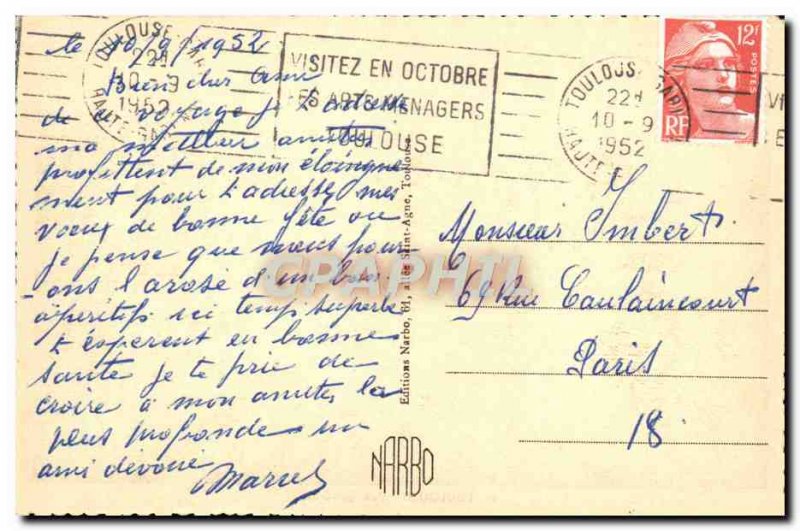 le 10/9/1952
Bien cher ami
de voyage je
ma meilleur amitié
profittent de mon éloingne
ment pour t adresse mes
voeux de bonne fête ou
je pense que nous pour
-ons l arosé d'un bon
apéritifs ici temp superbe
t esperent en bonne
santé je te prie de
croire a mon amitié la
plus profonde un
ami dévoué
Marcel
TOULOUSE-GARE
22H
10-9
1952
HAUTE-GNE
VISITEZ EN OCTOBRE
LES ARTS MENAGERS
TOULOUSE
TOULOUSE-GARE
22H
10-9
1952
HAUTE
12F
POSTES
RF
Editions Narbo, 61, allée Saint-Agne, Toulouse
Monsieur Imbert
69 Rue Caulaincourt
Paris
18
NARBO
CPAPHIL